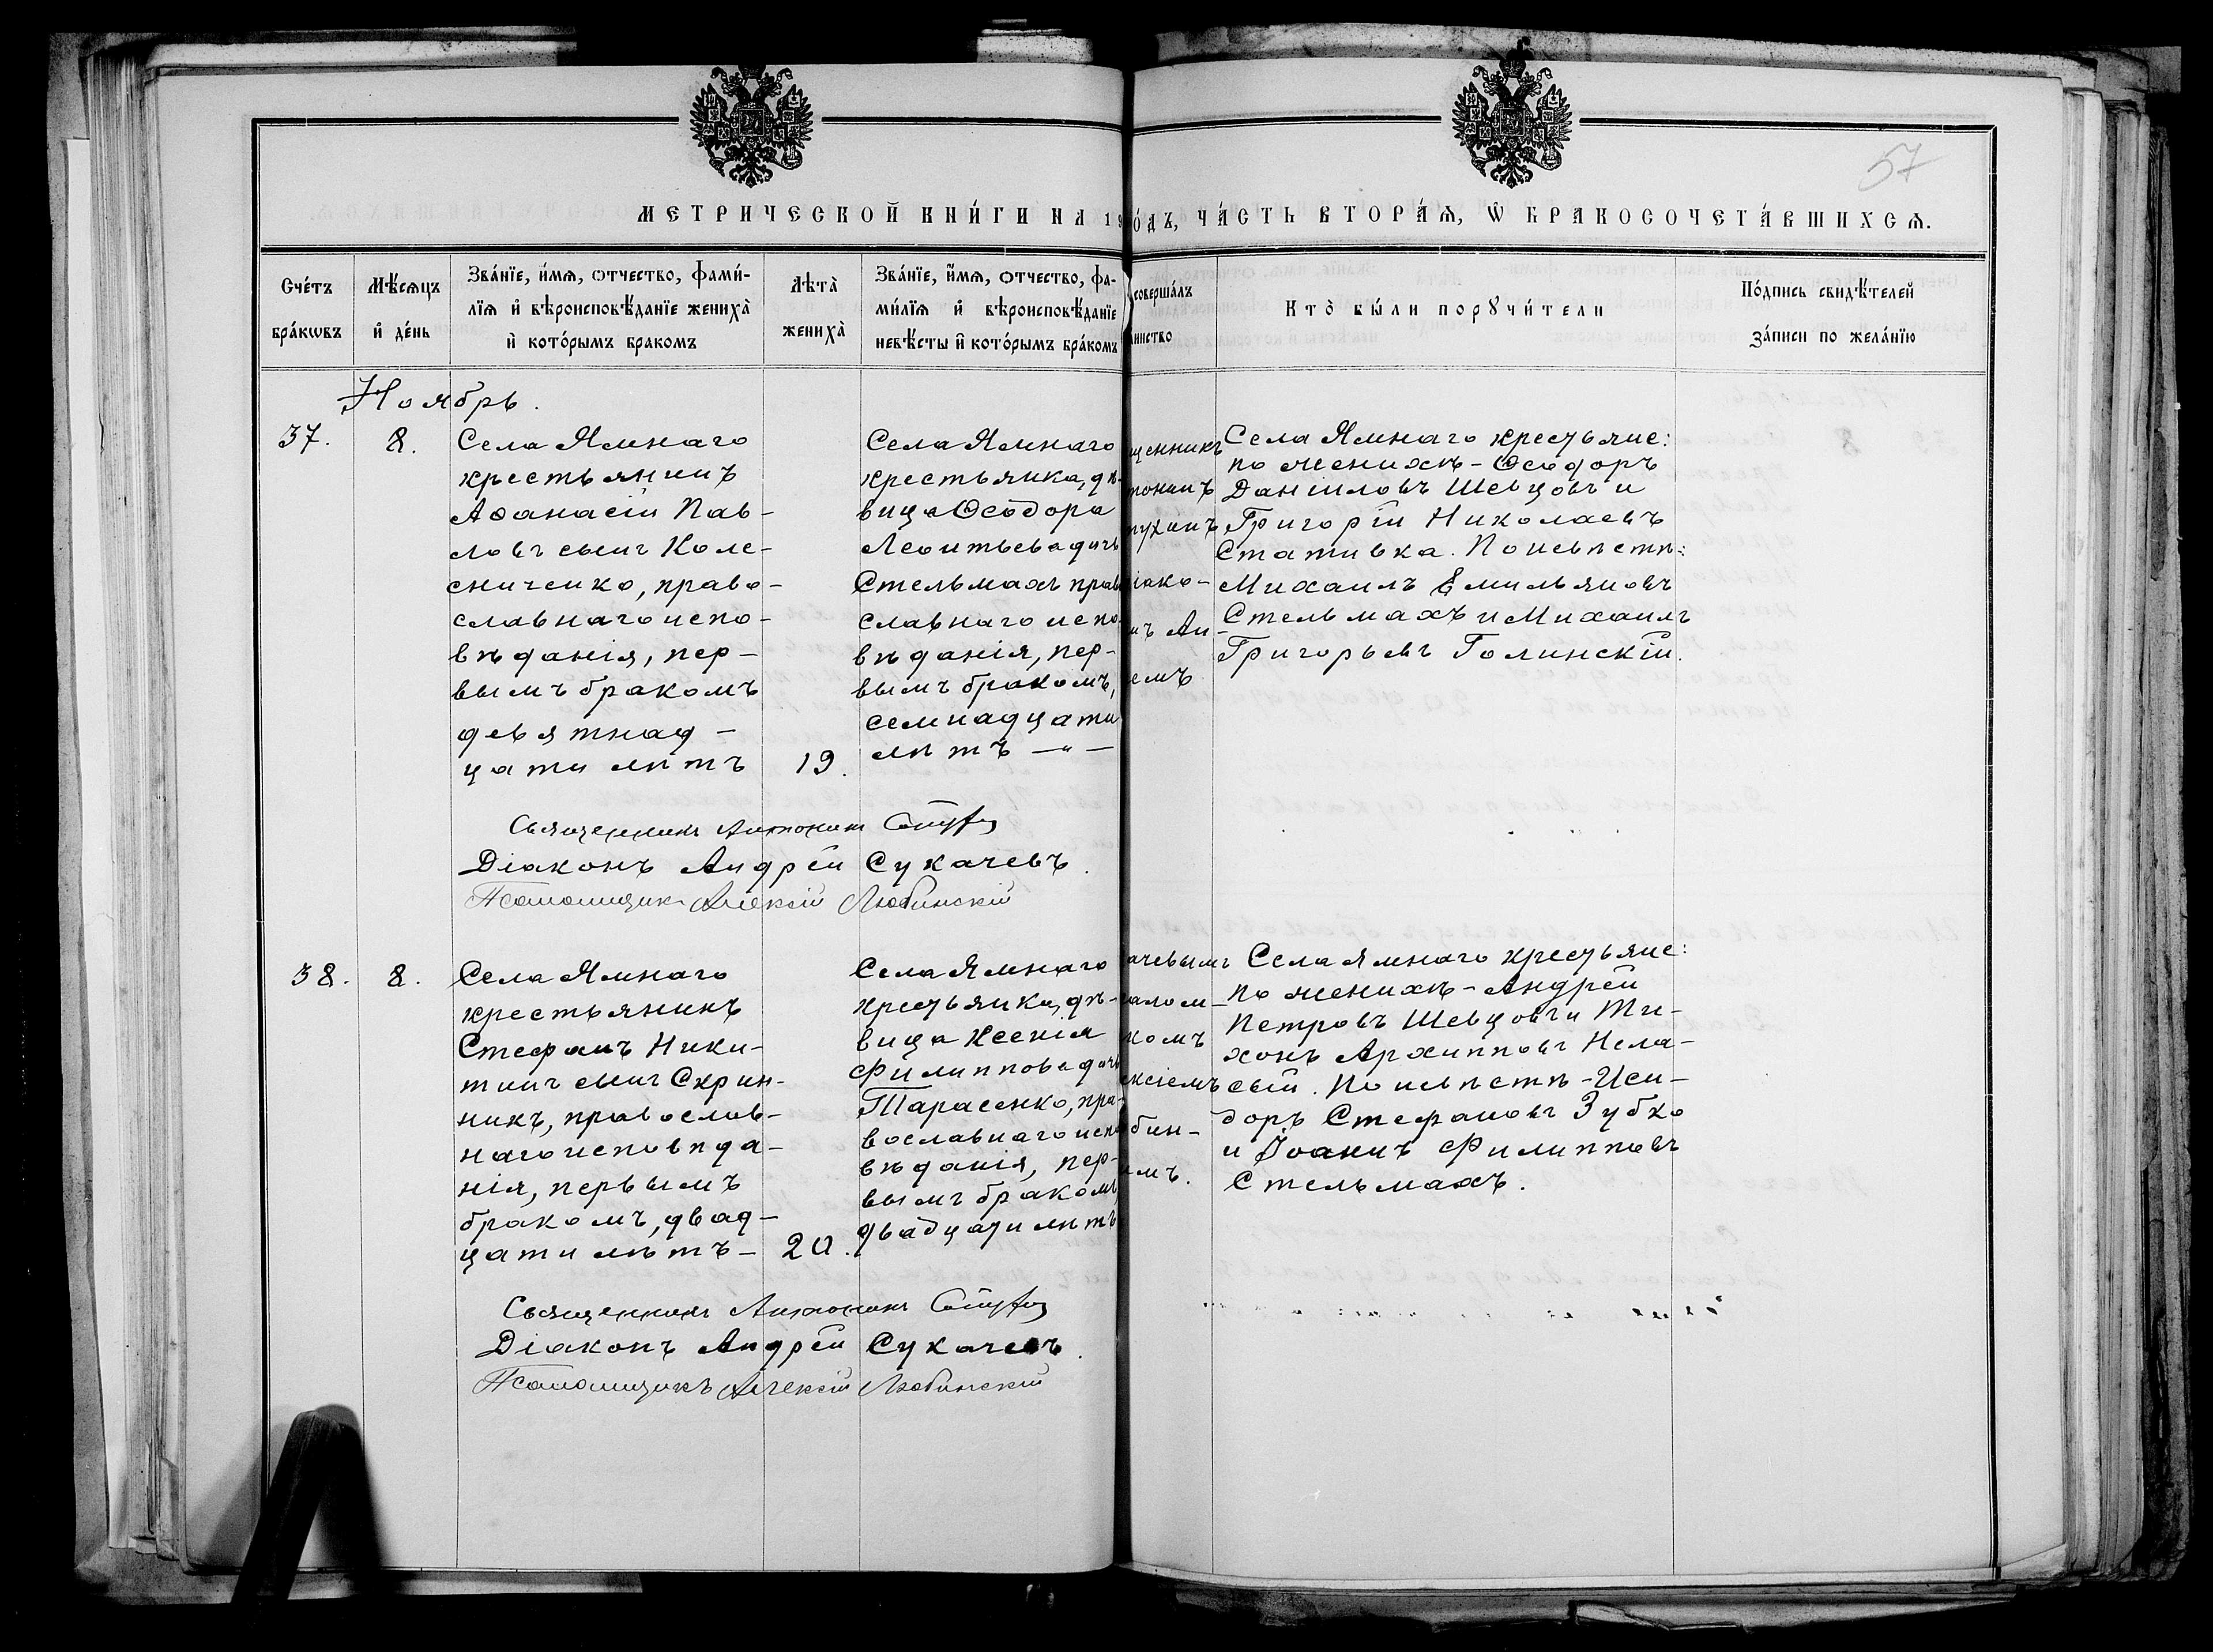 57
МЕТРИЧЕСКОЙ КНИ́ГИ НА 19
О́ДЪ, ЧА́СТЬ ВТОРА́Ѧ, Ѡ҆ БРАКОСОЧЕТА́ВШИХСѦ.
Сче́тъ бра́кѡвъ
Мѣ́сѧцъ и҆ де́нь
Зва́нїе, и҆́мѧ, ѻтчество, фами́-
лїѧ и҆ вѣроисповѣ́данїе жениха̀
и҆ кото́рымъ бракомъ
Лѣта̀ жениха̀
Зва́нїе, и҆́мѧ, ѻтчество, фа-
ми́лїѧ и҆ вѣроисповѣ́данїе
невѣ́сты и҆ кото́рымъ бра́комъ
соверша́лъ
инство
Кто̀ бы́ли порꙋчи́тели
По́дпись свидѣ́телей
за́писи по жела́нїю
Ноябрь.
37.
8.
Села Ямнаго
крестьянинъ
Аѳанасій Пав-
ловъ сынъ Коле-
сниченко, право-
славнаго испо-
вѣданія, пер-
вымъ бракомъ
девятнад-
цати лѣтъ
19.
Села Ямнаго
крестьянка, дѣ-
вица Ѳеодора
Леонтьева дочь
Стельмахъ прав
славнаго испо-
вѣданія, пер-
вымъ бракомъ,
семнадцати
лѣтъ — „ —
щенникъ
тонинъ
тухинъ
іако-
мъ Ан-
емъ
Села Ямнаго крестьяне:
по женихѣ - Ѳеодоръ
Даніиловъ Шевцовъ и
Григорій Николаевъ
Стативка. По невѣстѣ:
Михаилъ Емильяновъ
Стельмахъ и Михаилъ
Григорьевъ Голинскій.
Священникъ Антонинъ
Діаконъ Андрей Сукачевъ.
Псаломщикъ Алексій Любинскій
38.
8.
Села Ямнаго
крестьянинъ
Стефанъ Ники-
тинъ сынъ Скрин-
никъ, православ-
наго исповѣда-
нія, первымъ
бракомъ, двад-
цати лѣтъ —
20.
Села Ямнаго
крестьянка, дѣ-
вица Ксенія
Филиппова дочь
Тарасенко, пра-
вославнаго испо
вѣданія, пер-
вымъ бракомъ
двадцати лѣтъ
ачевымъ
алом-
комъ
ексіемъ
бин-
имъ.
Села Ямнаго крестьяне:
по женихѣ - Андрей
Петровъ Шевцовъ и Ти-
хонъ Архипповъ Нела-
сый. По невѣстѣ - Иси-
доръ Стефановъ Зубко
и Іоаннъ Филипповъ
Стельмахъ.
Священникъ Антонинъ
Діаконъ Андрей Сукачевъ.
Псаломщикъ Алексій Любинскій